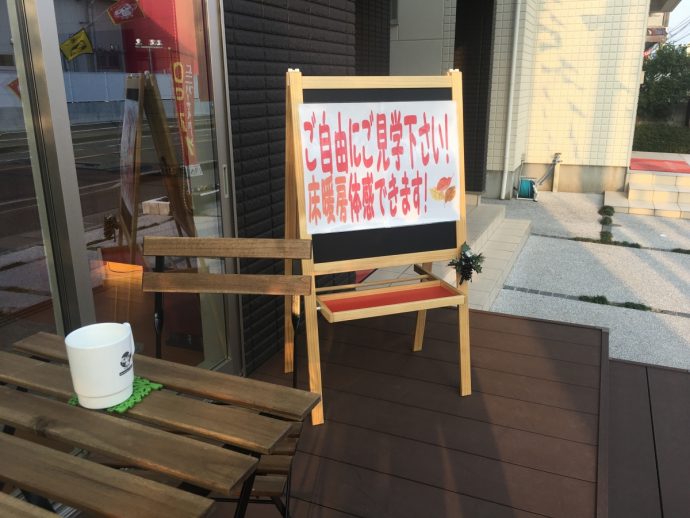 ご自由にご見学下さい！
床暖房体感できます！